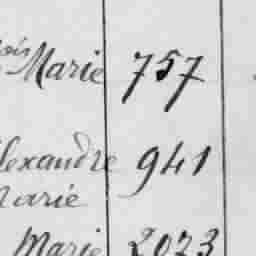 ois Marie 757
lexandre 941
Marie
Marie 2023